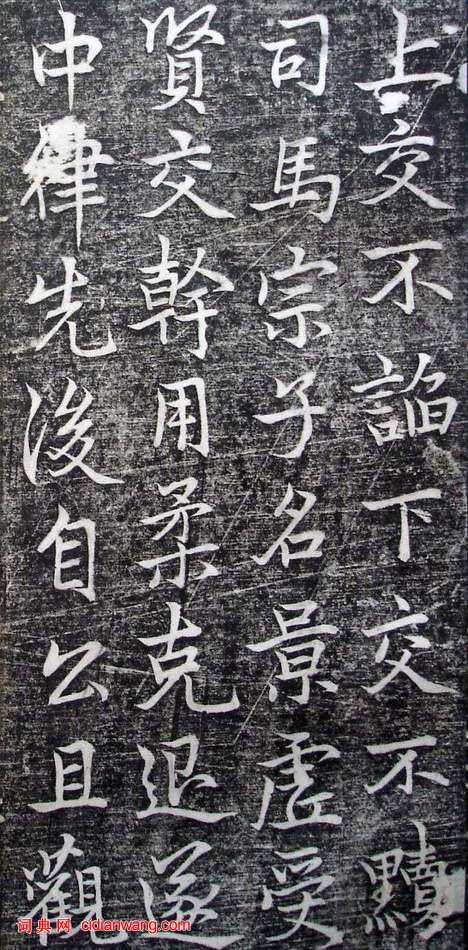 上交不諂下交不黷
司馬宗子名景虛受
賢交幹用柔克退遂
中律先後自公且觀
词典网 cidianwang.com